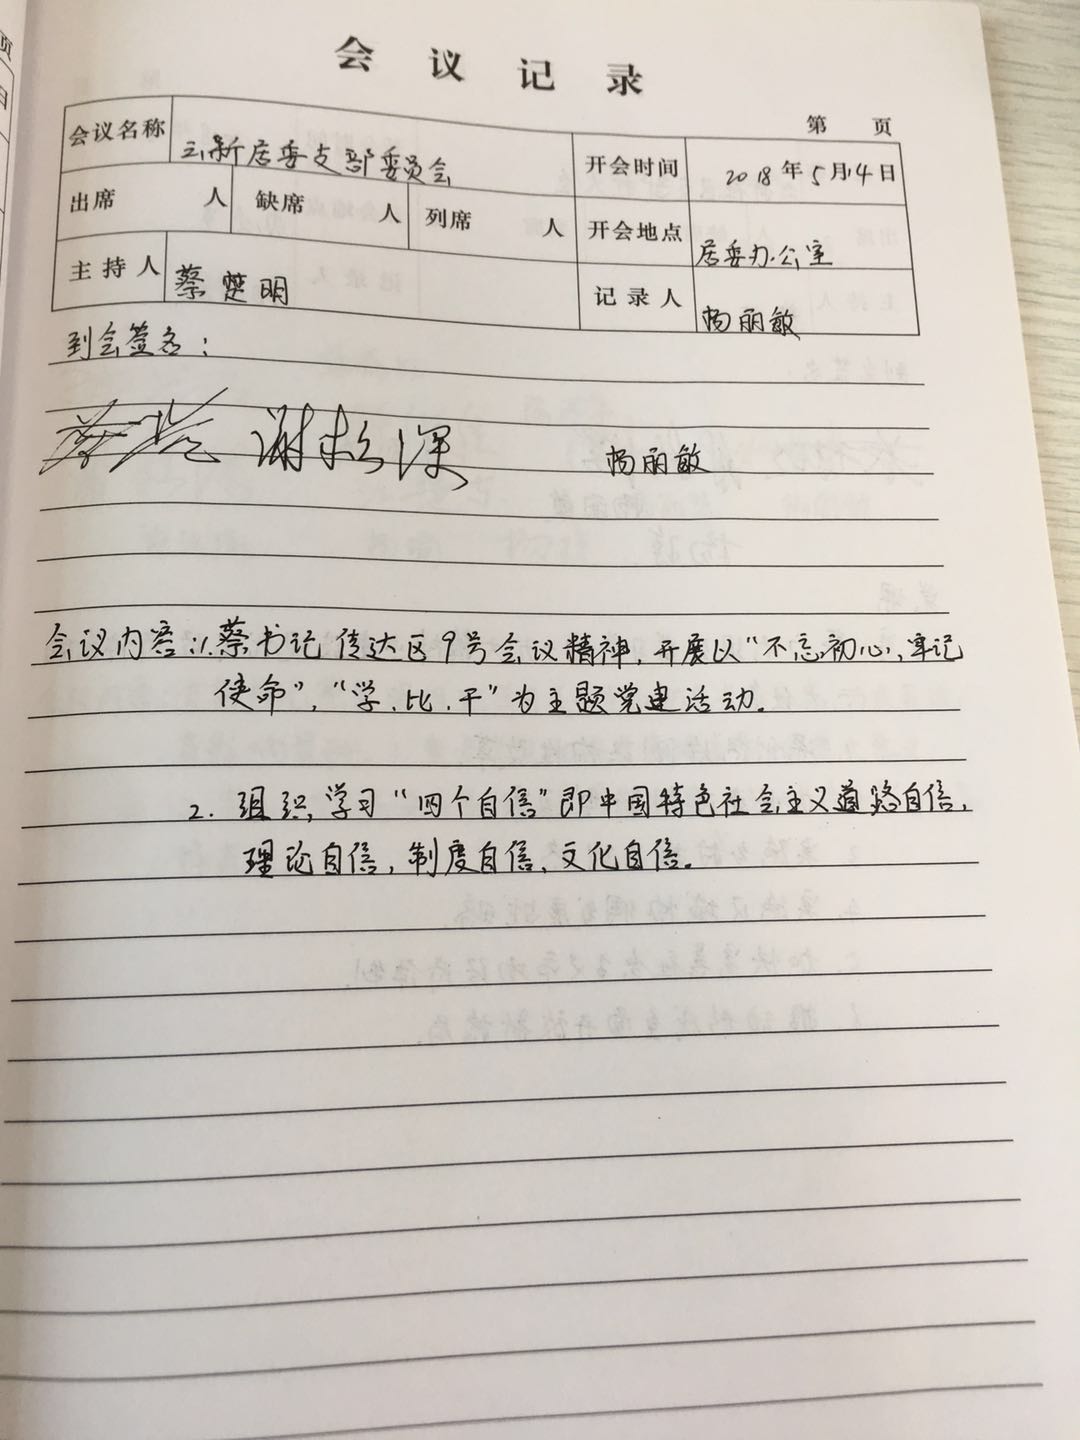 会议记录
第 页
会议名称 云新居委支部委员会 开会时间 2018年5月14日
出席 人 缺席 人 列席 人 开会地点 居委办公室
主持人 蔡楚明 记录人 杨丽敏
到会签名：
谢松深 杨丽敏
会议内容：1.蔡书记传达区9号会议精神，开展以“不忘初心、牢记
使命”，“学、比、干”为主题党建活动。
2. 组织学习“四个自信”即中国特色社会主义道路自信、
理论自信，制度自信、文化自信。